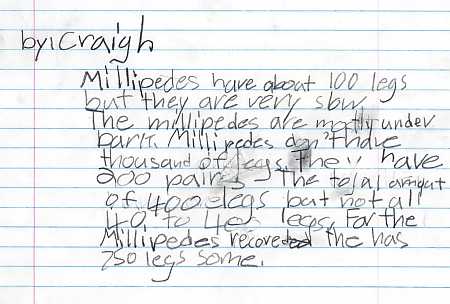 by: Craigh
Millipedes have about 100 legs
but they are very slow.
The millipedes are mostly under
bark. Millipedes don't have
thousand of legs. The have
200 pairs The total amount
of 400 legs but not all
40 to 400 legs. For the
Millipedes recoreded the has
750 legs some.